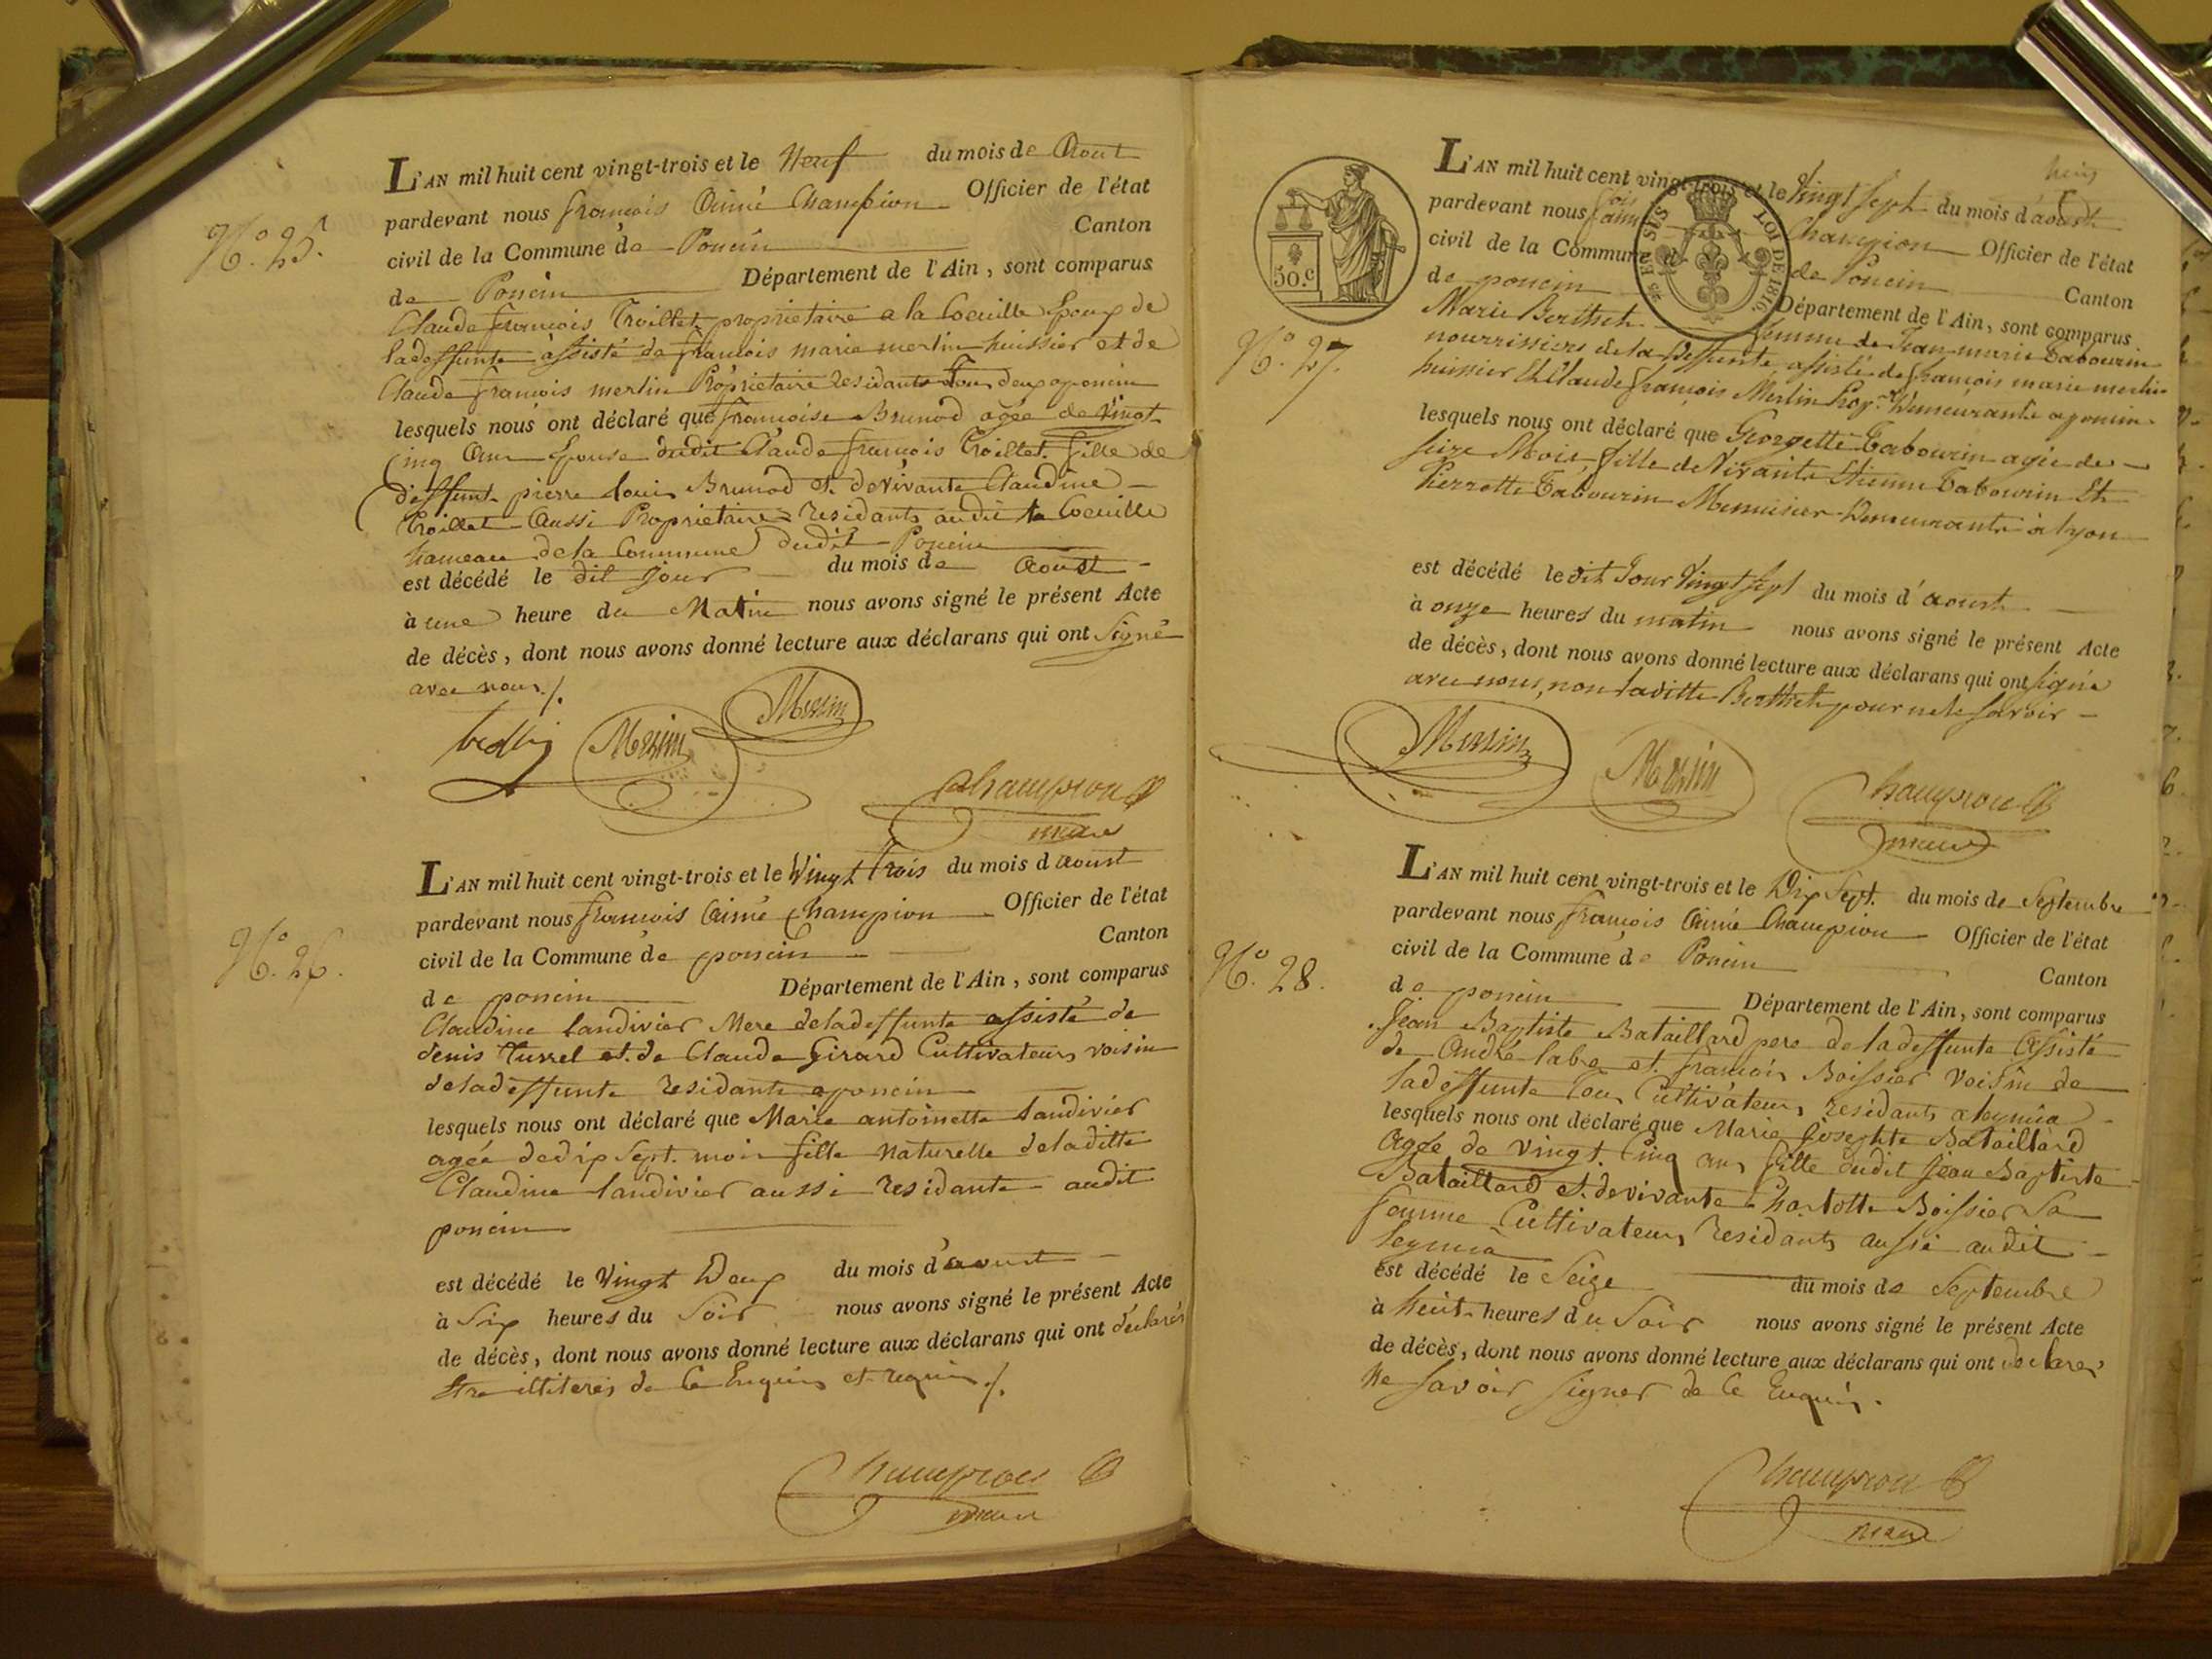 N.o 25.
L'AN mil huit cent vingt-trois et le Neuf du mois de Aout
pardevant nous françois Aimé Champion Officier de l'état
civil de la Commune de Poncin Canton
de Poncin Département de l'Ain, sont comparus
Claude françois Troillet propriétaire a la Coeuille Epoux de
ladeffunte assisté de françois marie merlin huissier et de
Claude françois merlin Propriétaire residants tous deux a poncin
lesquels nous ont déclaré que françoise Brunod agée de vingt
Cinq Ans Epouse dudit Claude françois Troillet fille de
deffunt pierre louis Brunod et de vivante Claudine
Troillet Aussi Propriétaires residants audit la Coeuille
hameau de la Commune dudit Poncin
est décédé le dit jour du mois de Aoust
à une heure du Matin nous avons signé le présent Acte
de décès, dont nous avons donné lecture aux déclarans qui ont Signé
avec nous ./.
Merlin Merlin
Champion
maire
N.o 26.
L'AN mil huit cent vingt-trois et le Vingt trois du mois d'aoust
pardevant nous françois Aimé Champion Officier de l'état
civil de la Commune de poncin Canton
de poncin Département de l'Ain, sont comparus
Claudine Landivier Mere deladeffunte assisté de
denis Turrel et de Claude Girard Cultivateurs voisin
deladeffunte residants a poncin
lesquels nous ont déclaré que Marie antoinette Landivier
agée dedix Sept mois fille naturelle deladitte
Claudine Landivier aussi residante audit
poncin
est décédé le Vingt Deux du mois d'aoust
à Six heures du Soir nous avons signé le présent Acte
de décès, dont nous avons donné lecture aux déclarans qui ont déclarés
Etre illiterés de Ce Enquis et requis ./.
Champion
maire
50.c
EN SUS
LOI DE 1816
N.o 27.
L'AN mil huit cent vingt-trois et le Vingt Sept du mois d'aoust
pardevant nous Champion Officier de l'état
civil de la Commune de Poncin Canton
de poncin Département de l'Ain, sont comparus
Marie Berthet femme de Jean marie Tabourin
nourrissiers dela deffunte, assistée de françois marie merlin
huissier Et Claude françois Merlin Prop.re Demeurants a poncin
lesquels nous ont déclaré que Georgette Tabourin agée de
seize Mois fille de Vivants Etienne Tabourin Et
Pierrette Tabourin Menuisier Demeurants à lyon
est décédé le dit Jour Vingt sept du mois d'aoust
à onze heures du matin nous avons signé le présent Acte
de décès, dont nous avons donné lecture aux déclarans qui ont signé
avec nous, non laditte Berthet pour ne le savoir
Merlin Merlin
Champion
maire
N.o 28.
L'AN mil huit cent vingt-trois et le Dix Sept du mois de Septembre
pardevant nous françois Aimé Champion Officier de l'état
civil de la Commune de Poncin Canton
de poncin Département de l'Ain, sont comparus
Jean Baptiste Bataillard pere de ladeffunte Assisté
de André labe et françois Boissier Voisin de
ladeffunte tous Cultivateurs residants a leymia
lesquels nous ont déclaré que Marie Josephte Bataillard
Agée de Vingt Cinq ans fille dudit Jean Baptiste
Bataillard et devivante Charlotte Boissier Sa
femme Cultivateurs residants aussi audit
leymia
est décédé le Seize du mois de Septembre
à huit heures du Soir nous avons signé le présent Acte
de décès, dont nous avons donné lecture aux déclarans qui ont declarés
Ne savoir signer de Ce Enquis.
Champion
maire